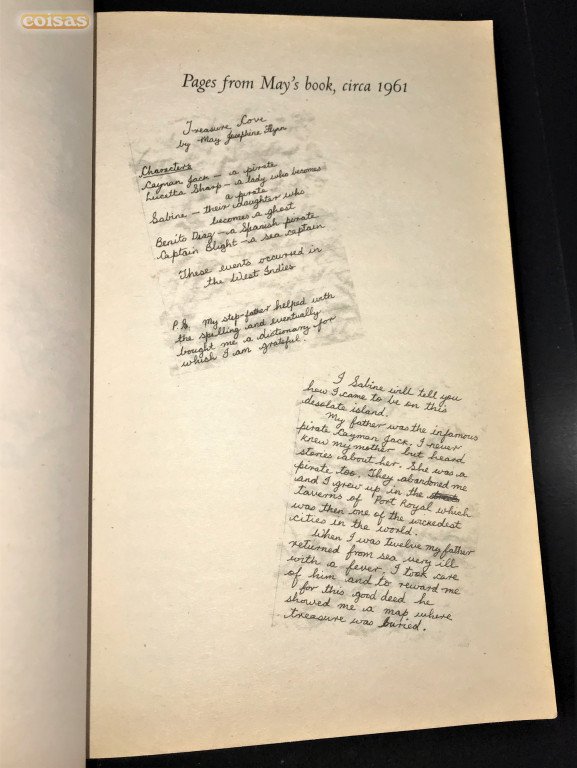 coisas
Pages from May's book, circa 1961
Treasure Love
by May Josephine Flynn
Characters
Cayman Jack — a pirate
Lucetta Sharp — a lady who becomes
a pirate
Sabine — their daughter who
becomes a ghost
Benito Diaz — a Spanish pirate
Captain Blight — a sea captain
These events occurred in
the West Indies
P.S. My step-father helped with
the spelling and eventually
bought me a dictionary for
which I am grateful.
I Sabine will tell you
how I came to be on this
desolate island.
My father was the infamous
pirate Cayman Jack. I never
knew my mother but heard
stories about her. She was a
pirate too. They abandoned me
and I grew up in the
taverns of Port Royal which
was then one of the wickedest
cities in the world.
When I was twelve my father
returned from sea very ill
with a fever. I took care
of him and to reward me
for this good deed he
showed me a map where
treasure was buried.